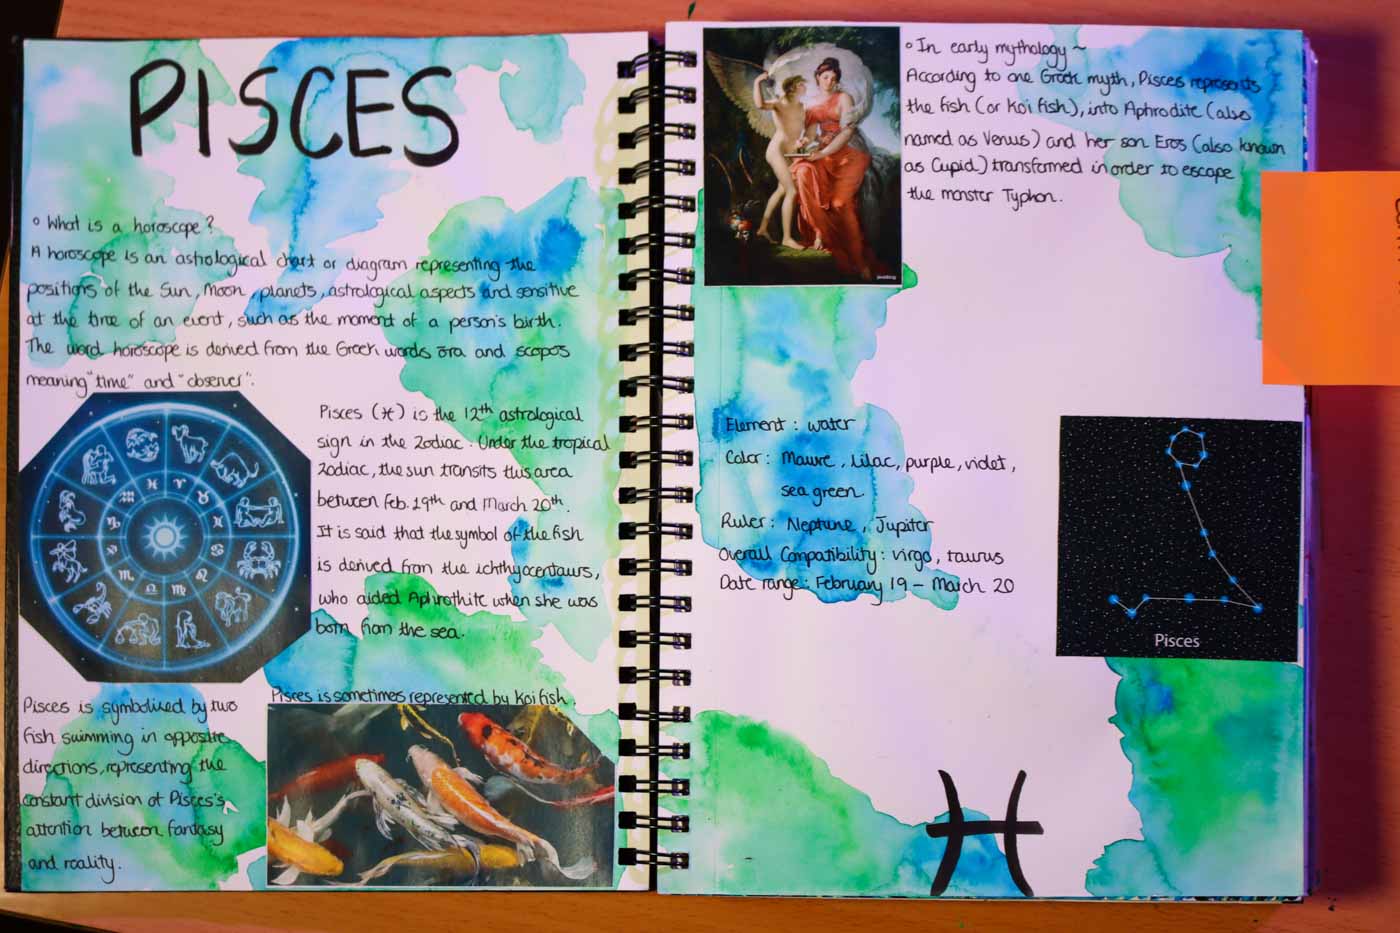 PISCES
° What is a horoscope?
A horoscope is an astrological chart or diagram representing the
positions of the Sun, Moon, planets, astrological aspects and sensitive
at the time of an event, such as the moment of a person's birth.
The word horoscope is derived from the Greek words ōra and scopos
meaning "time" and "observer".
Pisces (♓) is the 12th astrological
sign in the Zodiac. Under the tropical
zodiac, the sun transits this area
between Feb. 19th and March 20th.
It is said that the symbol of the fish
is derived from the ichthyocentaurs,
who aided Aphrothite when she was
born from the sea.
Pisces is symbolised by two
fish swimming in opposite
directions, representing the
constant division of Pisces's
attention between fantasy
and reality.
Pisces is sometimes represented by koi fish.
° In early mythology ~
According to one Greek myth, Pisces represents
the fish (or Koi fish), into Aphrodite (also
named as Venus) and her son Eros (also known
as Cupid) transformed in order to escape
the monster Typhon.
Element : water
Color : Mauve, lilac, purple, violet,
sea green.
Ruler : Neptune, Jupiter
Overall Compatibility : virgo, taurus
Date range : February 19 – March 20
Pisces
♓